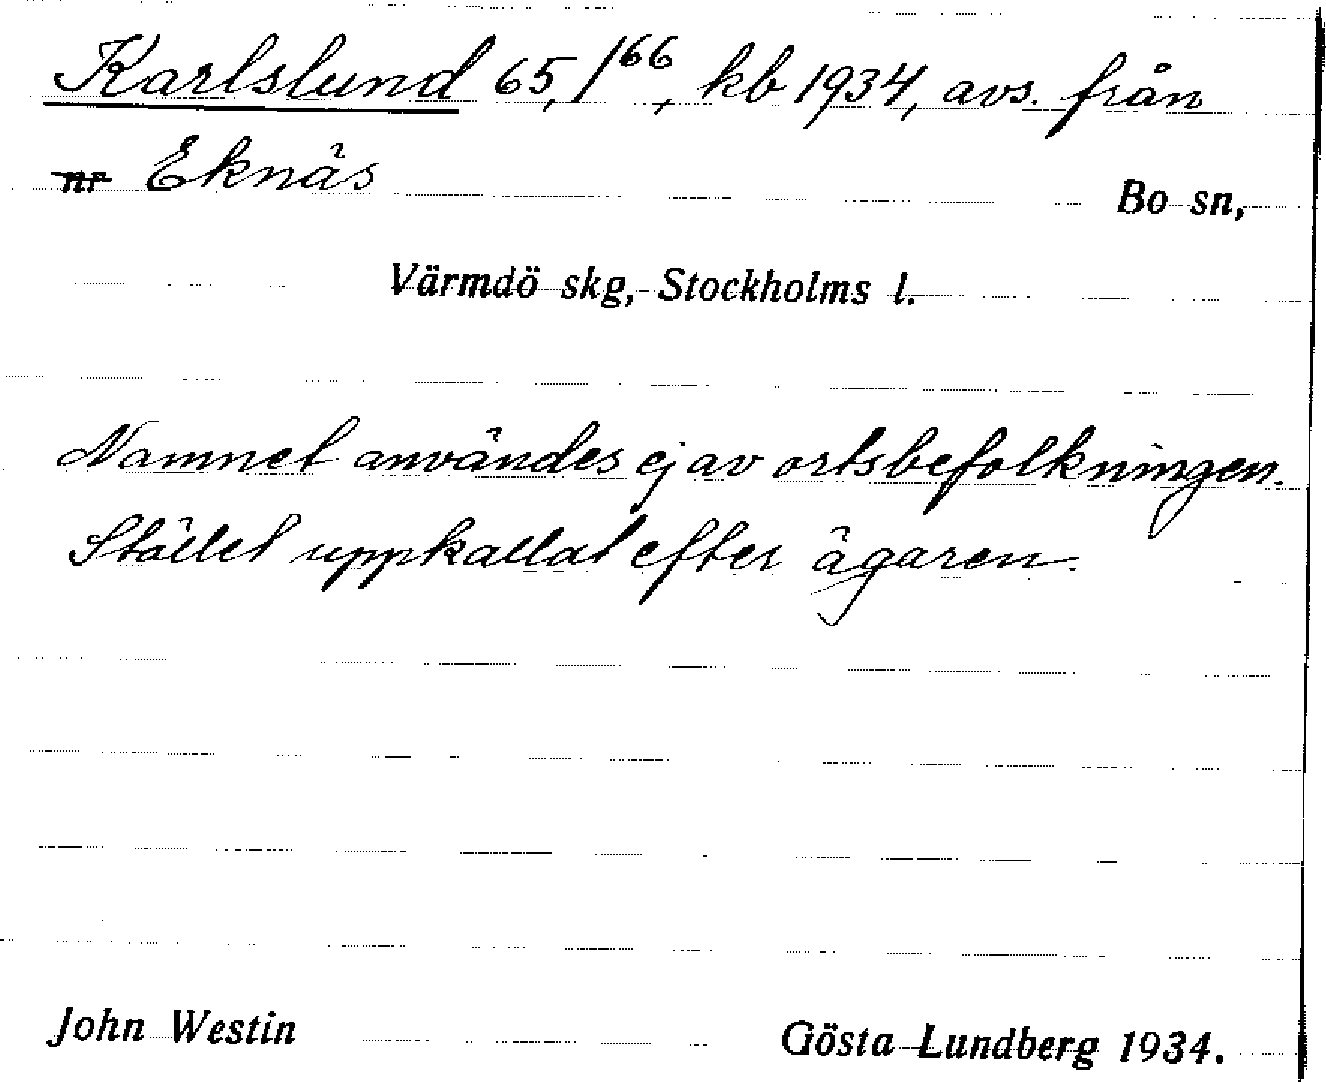 Karlslund 65,/66, kb 1934, avs. från
nr Eknäs
Bo sn,
Värmdö skg, Stockholms l.
Namnet användes ej av ortsbefolkningen.
Stället uppkallat efter ägaren.
John Westin Gösta Lundberg 1934.